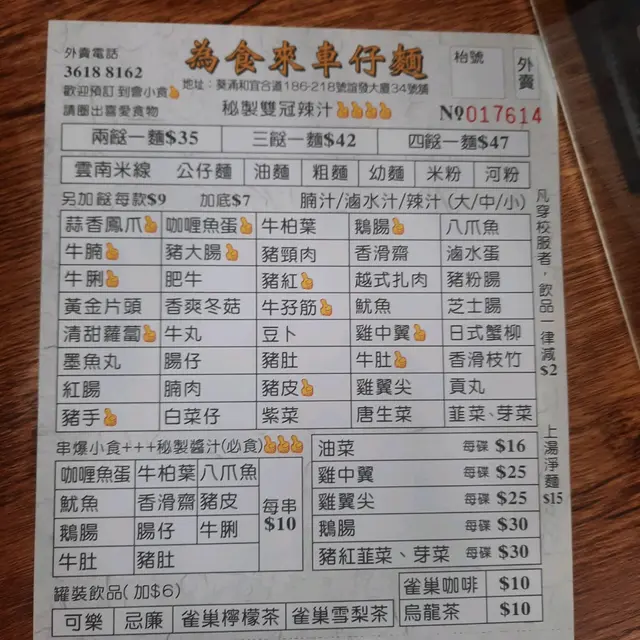 外賣電話
3618 8162
歡迎預訂 到會小食
請圈出喜愛食物
為食來車仔麵
地址：葵涌和宜合道186-218號誼發大廈34號舖
秘製雙冠辣汁
枱號
外賣
№017614
兩餸一麵$35 三餸一麵$42 四餸一麵$47
雲南米線 公仔麵 油麵 粗麵 幼麵 米粉 河粉
另加餸每款$9 加底$7 腩汁/滷水汁/辣汁 (大/中/小)
蒜香鳳爪 咖喱魚蛋 牛柏葉 鵝腸 八爪魚
牛腩 豬大腸 豬頸肉 香滑齋 滷水蛋
牛脷 肥牛 豬紅 越式扎肉 豬粉腸
黃金片頭 香爽冬菇 牛孖筋 魷魚 芝士腸
清甜蘿蔔 牛丸 豆卜 雞中翼 日式蟹柳
墨魚丸 腸仔 豬肚 牛肚 香滑枝竹
紅腸 腩肉 豬皮 雞翼尖 貢丸
豬手 白菜仔 紫菜 唐生菜 韮菜、芽菜
凡穿校服者，飲品一律減$2
上湯淨麵$15
串爆小食+++秘製醬汁(必食)
咖喱魚蛋 牛柏葉 八爪魚
魷魚 香滑齋 豬皮
鵝腸 腸仔 牛脷
牛肚 豬肚
每串
$10
油菜 每碟 $16
雞中翼 每碟 $25
雞翼尖 每碟 $25
鵝腸 每碟 $30
豬紅韮菜、芽菜 每碟 $30
罐裝飲品( 加$6)
可樂 忌廉 雀巢檸檬茶 雀巢雪梨茶
雀巢咖啡 $10
烏龍茶 $10